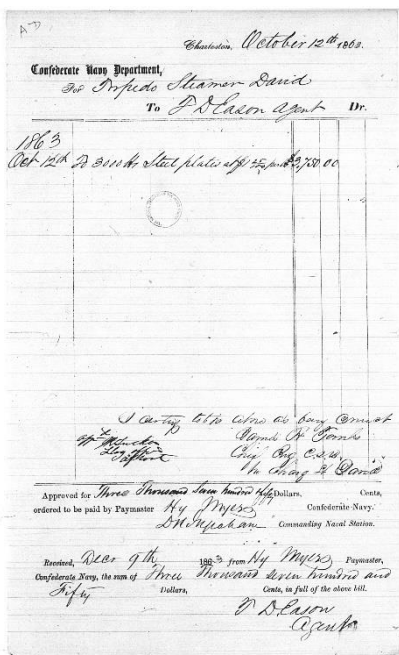 Charleston, October 12th 1863.
Confederate Navy Department,
For Torpedo Steamer David
To F D Eason Agent Dr.
1863
Oct 12th To 3000 lbs Steel plates at $1 25/100 per lb $3,750.00
I certify to the above as being correct
James H Tomb
Chf Eng C.S.N.
In charge of David
Approved for Three Thousand Seven hundred fifty Dollars, Cents,
ordered to be paid by Paymaster Hy Myers Confederate Navy.
Commanding Naval Station.
Received, Decr 9th 1863 from Hy Myers Paymaster,
Confederate Navy, the sum of Three Thousand seven hundred and
Fifty Dollars, Cents, in full of the above bill.
F D Eason
Agent